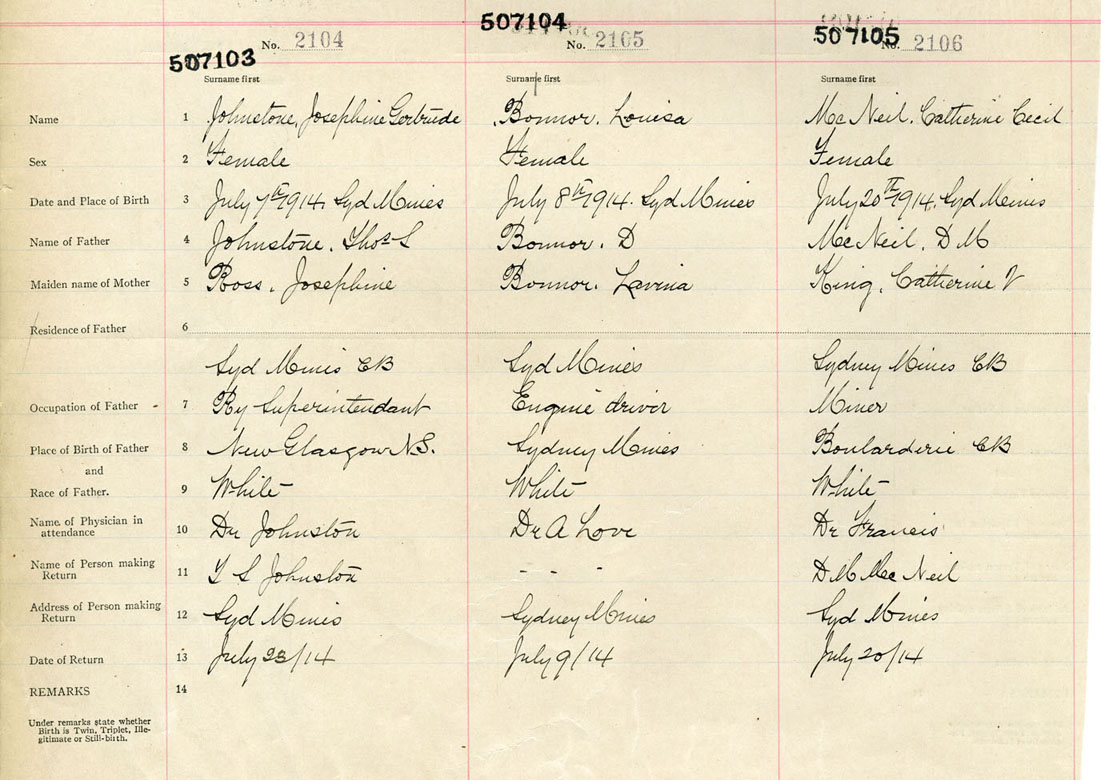 507103 No. 2104 507104 No. 2105 507105 No. 2106
Surname first Surname first Surname first
Name 1 Johnstone, Josephine Gertrude Bonnor. Louisa Mc Neil. Catherine Cecil
Sex 2 Female Female Female
Date and Place of Birth 3 July 7th 1914, Syd Mines July 8th 1914. Syd Mines July 20th 1914. Syd Mines
Name of Father 4 Johnstone. Thos S Bonnor. D Mc Neil. D M
Maiden name of Mother 5 Ross. Josephine Bonnor. Lavina King. Catherine V
Residence of Father 6
Syd Mines CB Syd Mines Sydney Mines CB
Occupation of Father 7 Ry Superintendant Engine driver Miner
Place of Birth of Father 8 New Glasgow N.S. Sydney Mines Boularderie CB
and
Race of Father. 9 White White White
Name of Physician in
attendance 10 Dr Johnston Dr A Love Dr Francis
Name of Person making
Return 11 T S Johnston - - - D M Mac Neil
Address of Person making
Return 12 Syd Mines Sydney Mines Syd Mines
Date of Return 13 July 23/14 July 9/14 July 20/14
REMARKS 14
Under remarks state whether
Birth is Twin, Triplet, Ille-
gitimate or Still-birth.